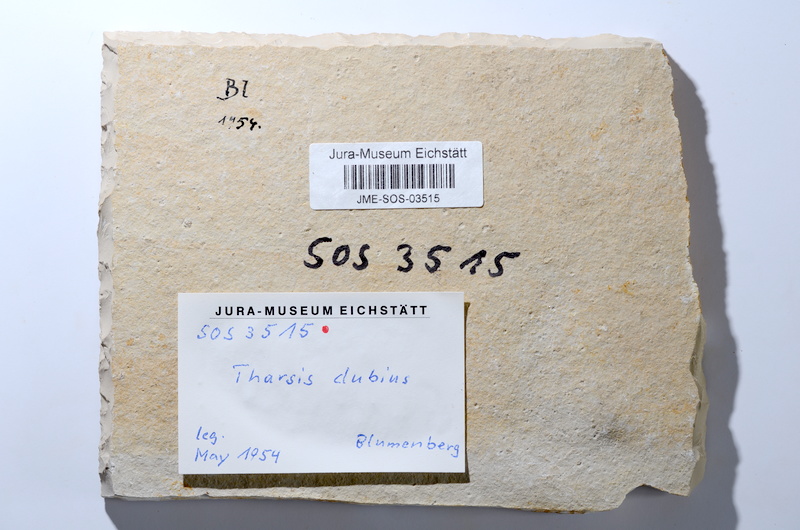 Bl
1954.
Jura-Museum Eichstätt
JME-SOS-03515
SOS 3515
JURA-MUSEUM EICHSTÄTT
SOS 3515
Tharsis dubius
leg.
May 1954
Blumenberg